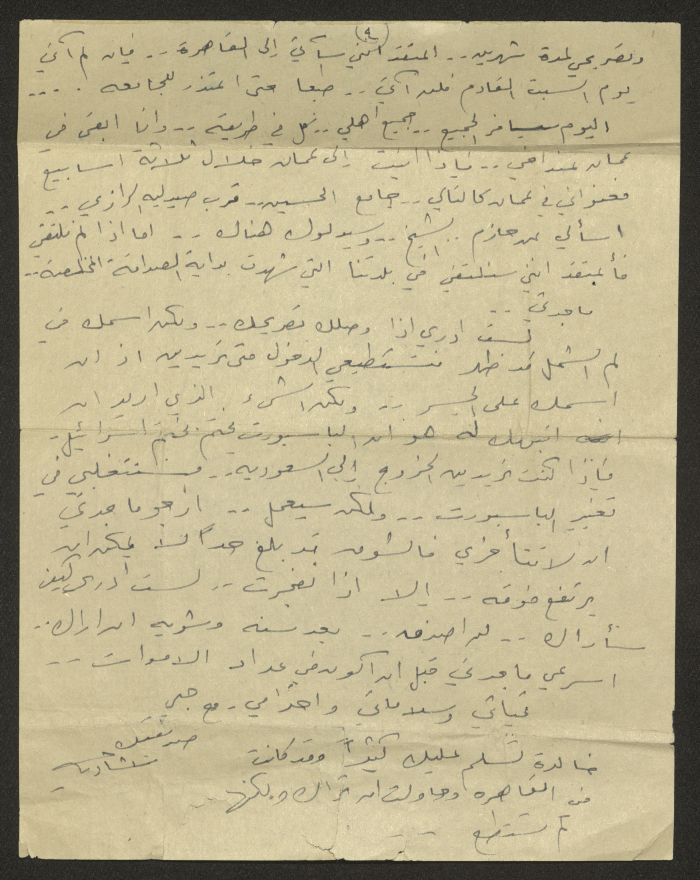 (٤)
وتصريحي لمدة شهرين .. المتقد انني سآتي إلى القاهرة .. فإن لم آتي
يوم السبت القادم فلن آتي .. طبعا حتى اعتذر للجامعه ....
اليوم سيسافر الجميع .. جميع اهلي .. كل في طريقه .. وانا ابقى في
عمان عند اخي .. فإذا اتيت إلى عمان خلال ثلاثة اسابيع
فعنواني في عمان كالتالي .. جامع الحسين .. قرب صيدلية الرازي ..
اسألي عن حازم الشيخ .. وسيدلوك هناك .. اما اذا لم نلتقي
فأعتقد انني سنلتقي في بلدتنا التي شهدت بداية الصداقة المخلصة ..
ماجدتي ..
لست ادري اذا وصلك تصريحك .. ولكن اسمك في
لم الشمل قد ظهر فتستطيعي الدخول متى تريدين اذ ان
اسمك على الجسر .. ولكن الشيء الذي اريد ان
انبهك له هو ان الباسبورت يختم بختم اسرائيل
فإذا كنت تريدين الخروج إلى السعودية .. فستتغلبي في
تغيير الباسبورت .. ولكن سيعمل .. ارجو ماجدتي
ان لا تتأخري فالشوق قد بلغ حداً لا يمكن ان
يرتفع فوقه .. إلا اذا تفجرت .. لست ادري كيف
سأراك .. لن اصدق .. بعد سنه وشويه ان اراك ..
اسرعي ماجدتي قبل ان اكون في عداد الاموات ..
تحياتي وسلاماتي واحترامي مع حبي
صديقتك
خالدة تسلم عليك كثيراً وقد كانت
في القاهره وحاولت ان تراك ولكنها
لم تستطع ..